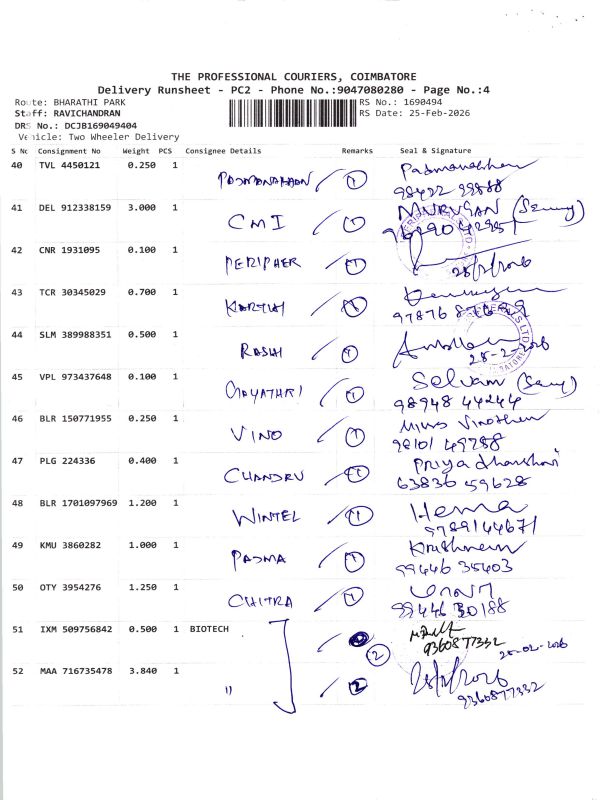 THE PROFESSIONAL COURIERS, COIMBATORE
Delivery Runsheet - PC2 - Phone No.:9047080280 - Page No.:4
Route: BHARATHI PARK
RS No.: 1690494
Staff: RAVICHANDRAN
RS Date: 25-Feb-2026
DRS No.: DCJB169049404
Vehicle: Two Wheeler Delivery
S No Consignment No Weight PCS Consignee Details Remarks Seal & Signature
40 TVL 4450121 0.250 1 PADMANABHAN 1 Padmanabhan
98422 99888
41 DEL 912338159 3.000 1 CMI 1 MURUGAN
42 CNR 1931095 0.100 1 PERIPHER 1
43 TCR 30345029 0.700 1 KARTHI 1
97876
44 SLM 389988351 0.500 1 RASHI 1
25-2-2026
45 VPL 973437648 0.100 1 GAYATHRI 1 Selvam
98948 44244
46 BLR 150771955 0.250 1 VINO 1
98101 49288
47 PLG 224336 0.400 1 CHANDRU 1 Priyadharshani
63836 59628
48 BLR 1701097969 1.200 1 WINTEL 1 Hema
9789144671
49 KMU 3860282 1.000 1 PADMA 1
99446 35403
50 OTY 3954276 1.250 1 CHITRA 1
99446 30188
51 IXM 509756842 0.500 1 BIOTECH
9360877332
2
25-02-2026
52 MAA 716735478 3.840 1 " 2
9360877332